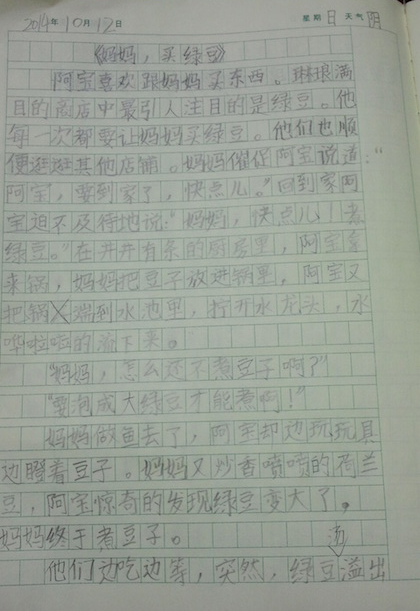 2014年10月12日 星期日 天气阴
《妈妈，买绿豆》
阿宝喜欢跟妈妈买东西。琳琅满
目的商店中最引人注目的是绿豆。他
每一次都要让妈妈买绿豆。他们也顺
便逛逛其他店铺。妈妈催促阿宝说道：“
阿宝，要到家了，快点儿。”回到家阿
宝迫不及待地说：“妈妈，快点儿！煮
绿豆。”在井井有条的厨房里，阿宝拿
来锅，妈妈把豆子放进锅里。阿宝又
把锅端到水池里，拧开水龙头，水
哗啦啦的流下来。
“妈妈，怎么还不煮豆子啊？”
“要泡成大绿豆才能煮啊！”
妈妈做鱼去了，阿宝却边玩玩具
边瞪着豆子。妈妈又炒香喷喷的荷兰
豆，阿宝惊奇的发现绿豆变大了。
妈妈终于煮豆子。
他们边吃边等，突然，绿豆溢出